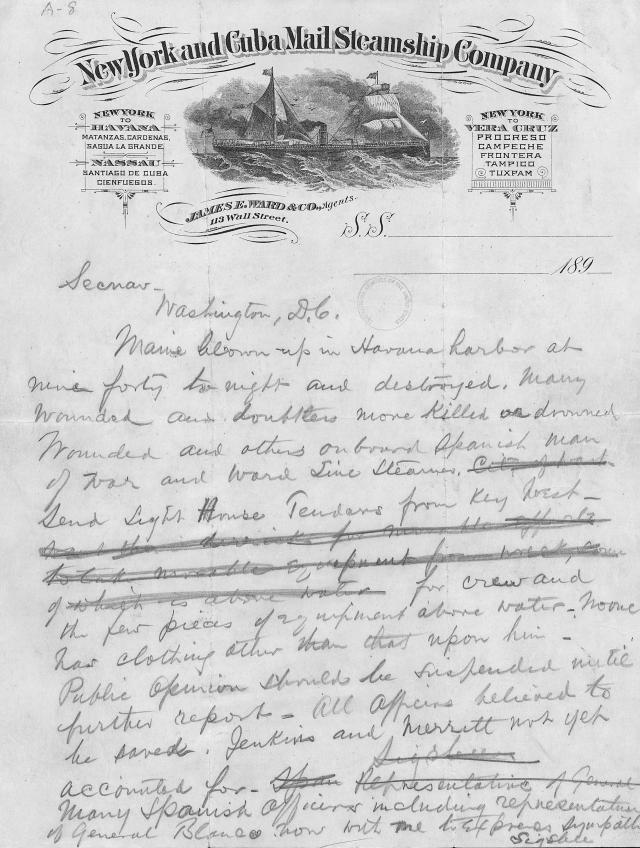 A-8
New York and Cuba Mail Steamship Company
NEW YORK
TO
HAVANA
MATANZAS, CARDENAS,
SAGUA LA GRANDE.
NASSAU
SANTIAGO DE CUBA
CIENFUEGOS.
NEW YORK
TO
VERA CRUZ
PROGRESO
CAMPECHE
FRONTERA
TAMPICO
TUXPAM
JAMES E. WARD & CO., Agents.
113 Wall Street.
S.S.
189
Secnav -
Washington, D.C.
Maine blown up in Havana harbor at
nine forty to night and destroyed. Many
wounded and doubtless more killed or drowned
Wounded and others on board Spanish man
of war and Ward Line Steamer. City of Wash
Send Light House Tenders from Key West -
for movable
to take movable equipment from wreck, some
of which is above water for crew and
the few pieces of equipment above water - No one
has clothing other than that upon him -
Public Opinion should be suspended until
further report - All Officers believed to
be saved. Jenkins and Merritt not yet
Sigsbee
accounted for - Span Representative of General
Many Spanish Officers including representative
of General Blanco now with me to express sympathy
Sigsbee